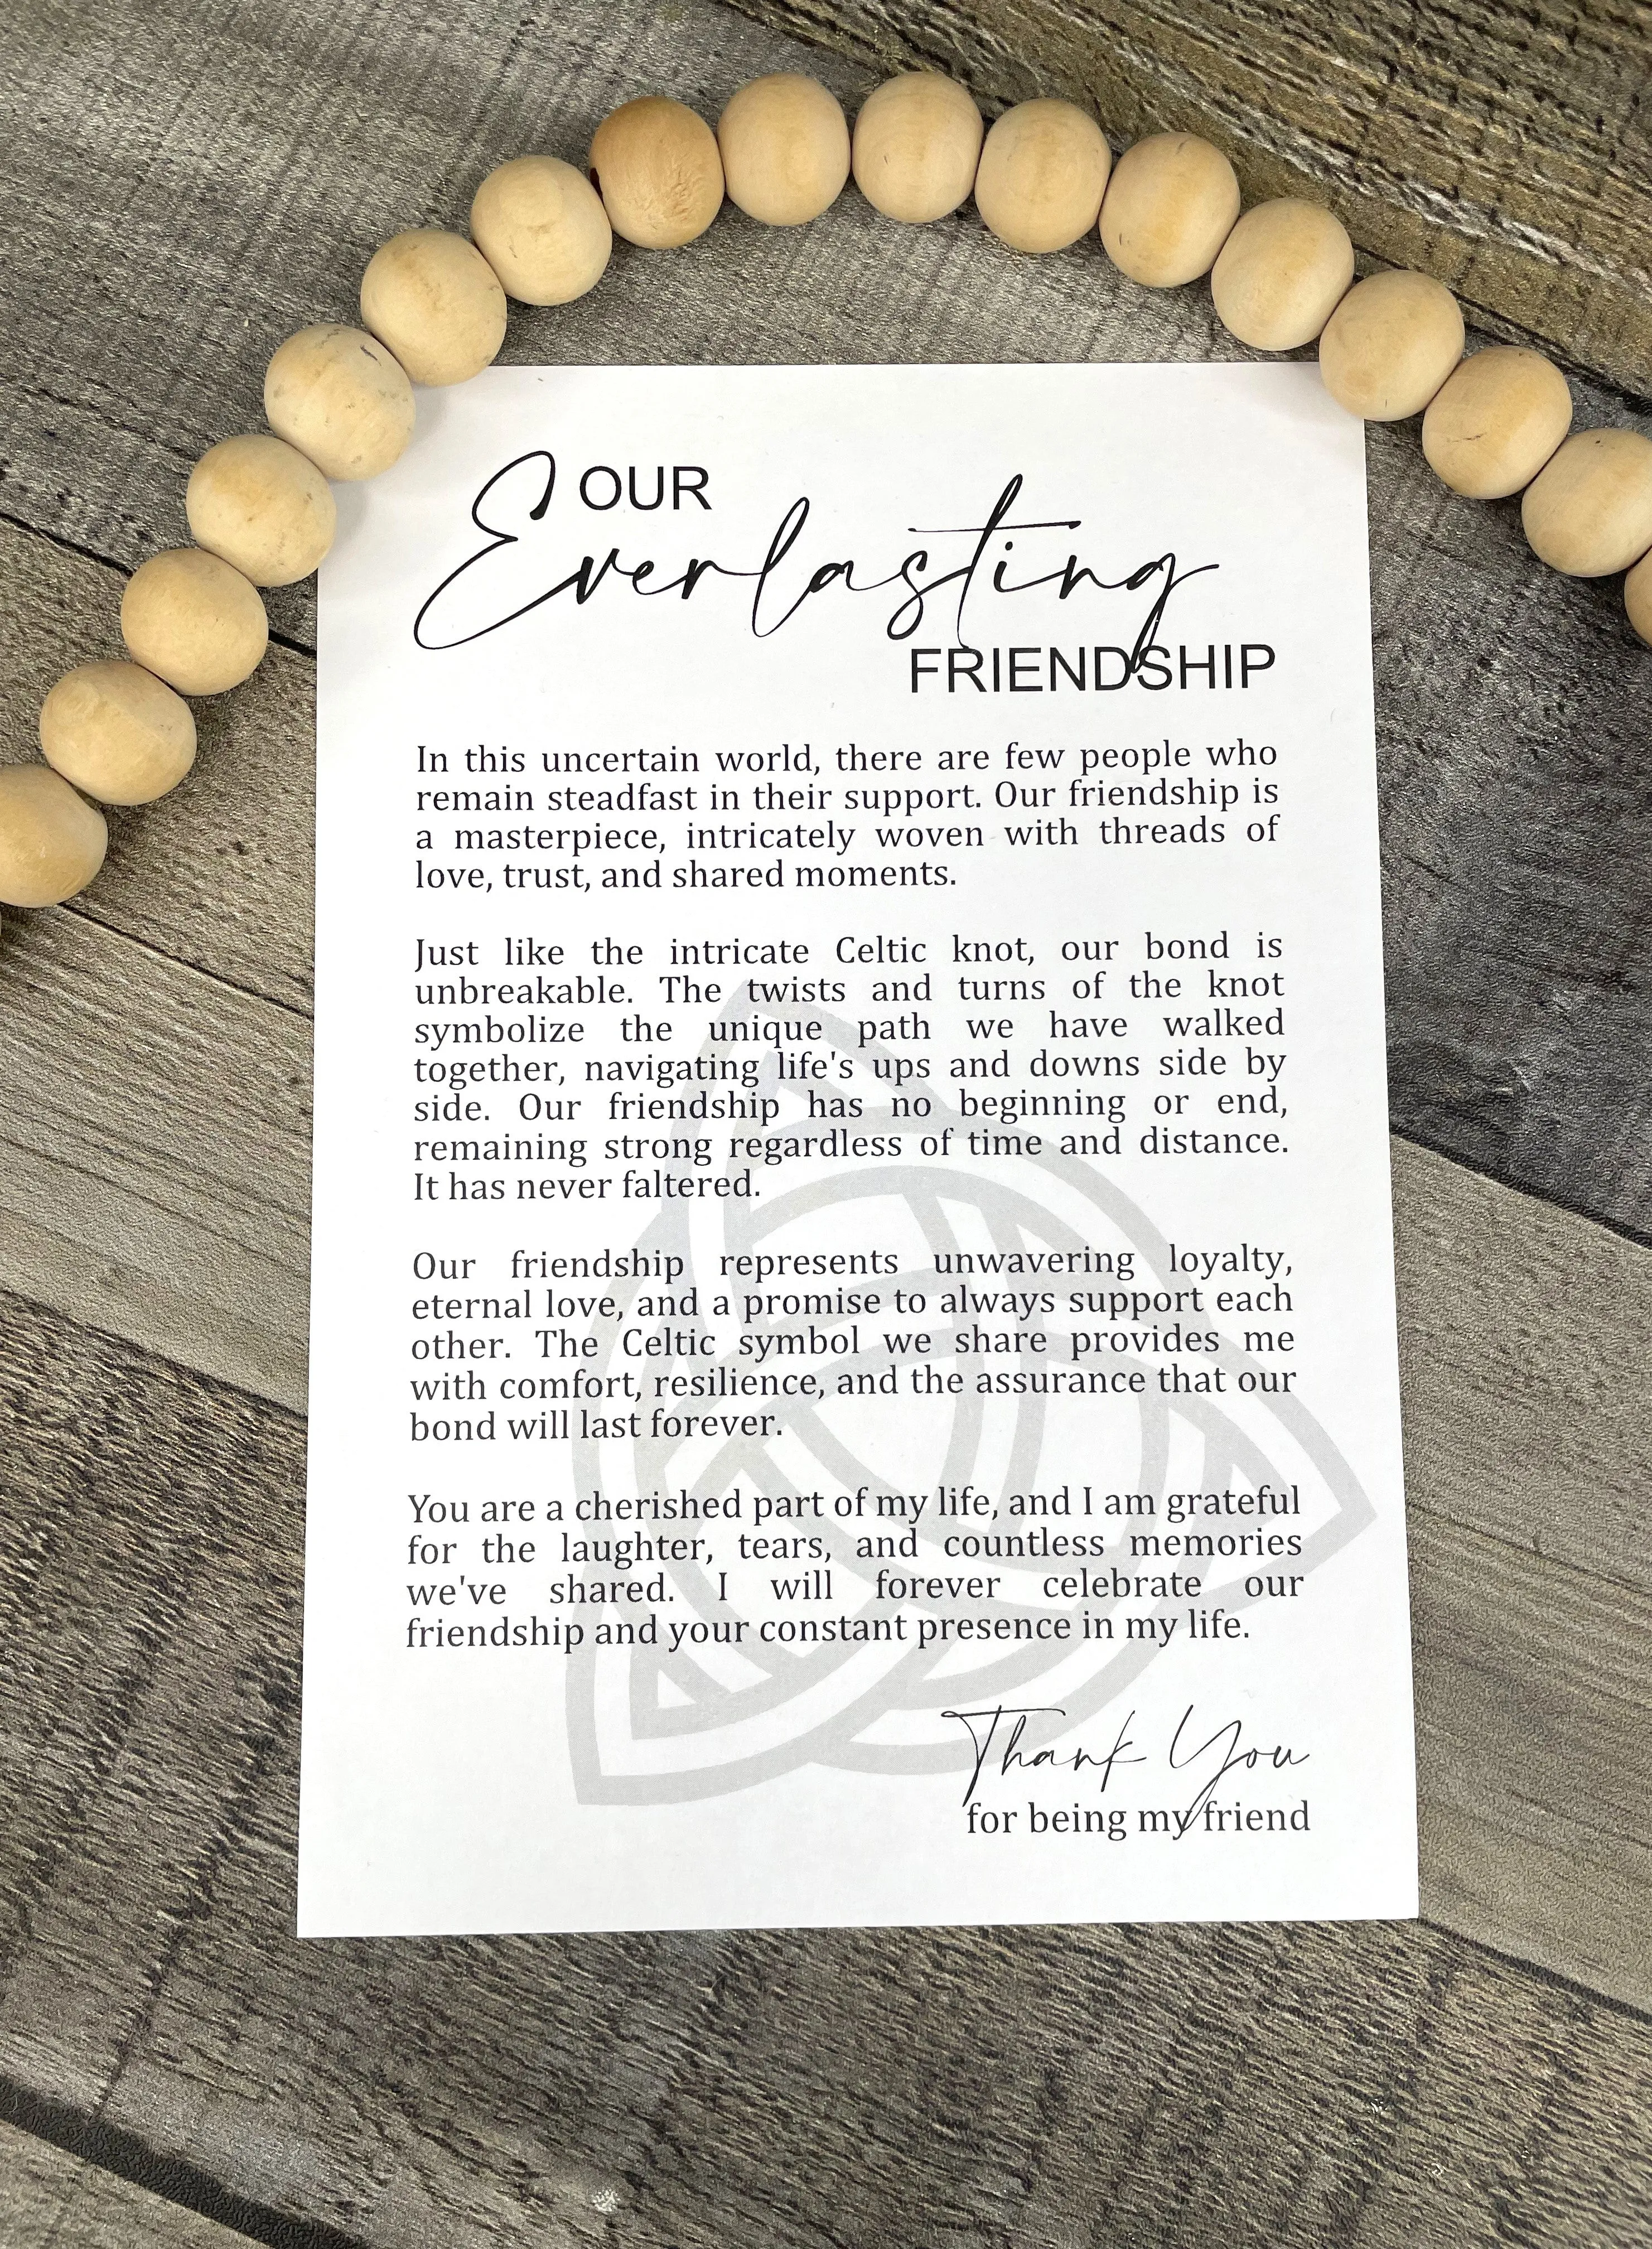 OUR
Everlasting
FRIENDSHIP
In this uncertain world, there are few people who
remain steadfast in their support. Our friendship is
a masterpiece, intricately woven with threads of
love, trust, and shared moments.
Just like the intricate Celtic knot, our bond is
unbreakable. The twists and turns of the knot
symbolize the unique path we have walked
together, navigating life's ups and downs side by
side. Our friendship has no beginning or end,
remaining strong regardless of time and distance.
It has never faltered.
Our friendship represents unwavering loyalty,
eternal love, and a promise to always support each
other. The Celtic symbol we share provides me
with comfort, resilience, and the assurance that our
bond will last forever.
You are a cherished part of my life, and I am grateful
for the laughter, tears, and countless memories
we've shared. I will forever celebrate our
friendship and your constant presence in my life.
Thank You
for being my friend